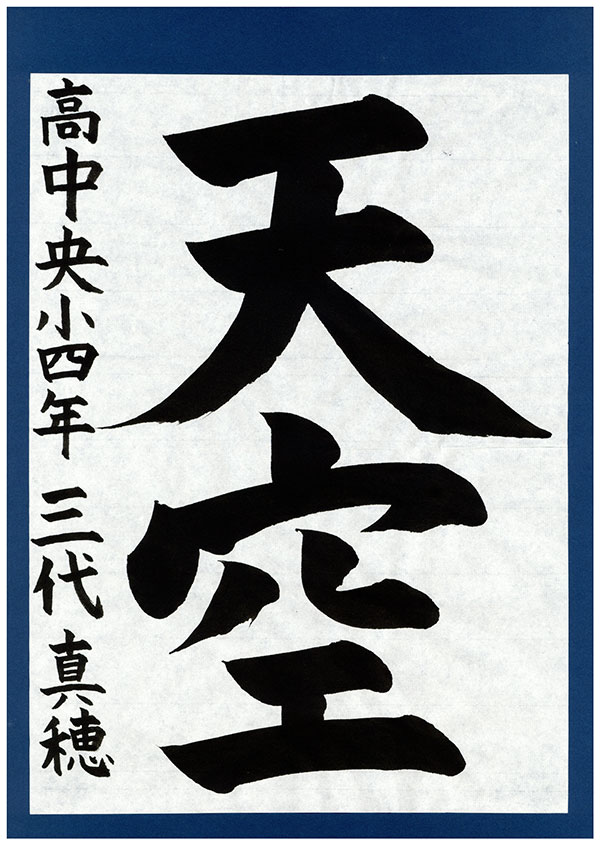 天空
高中央小四年 三代 真穂